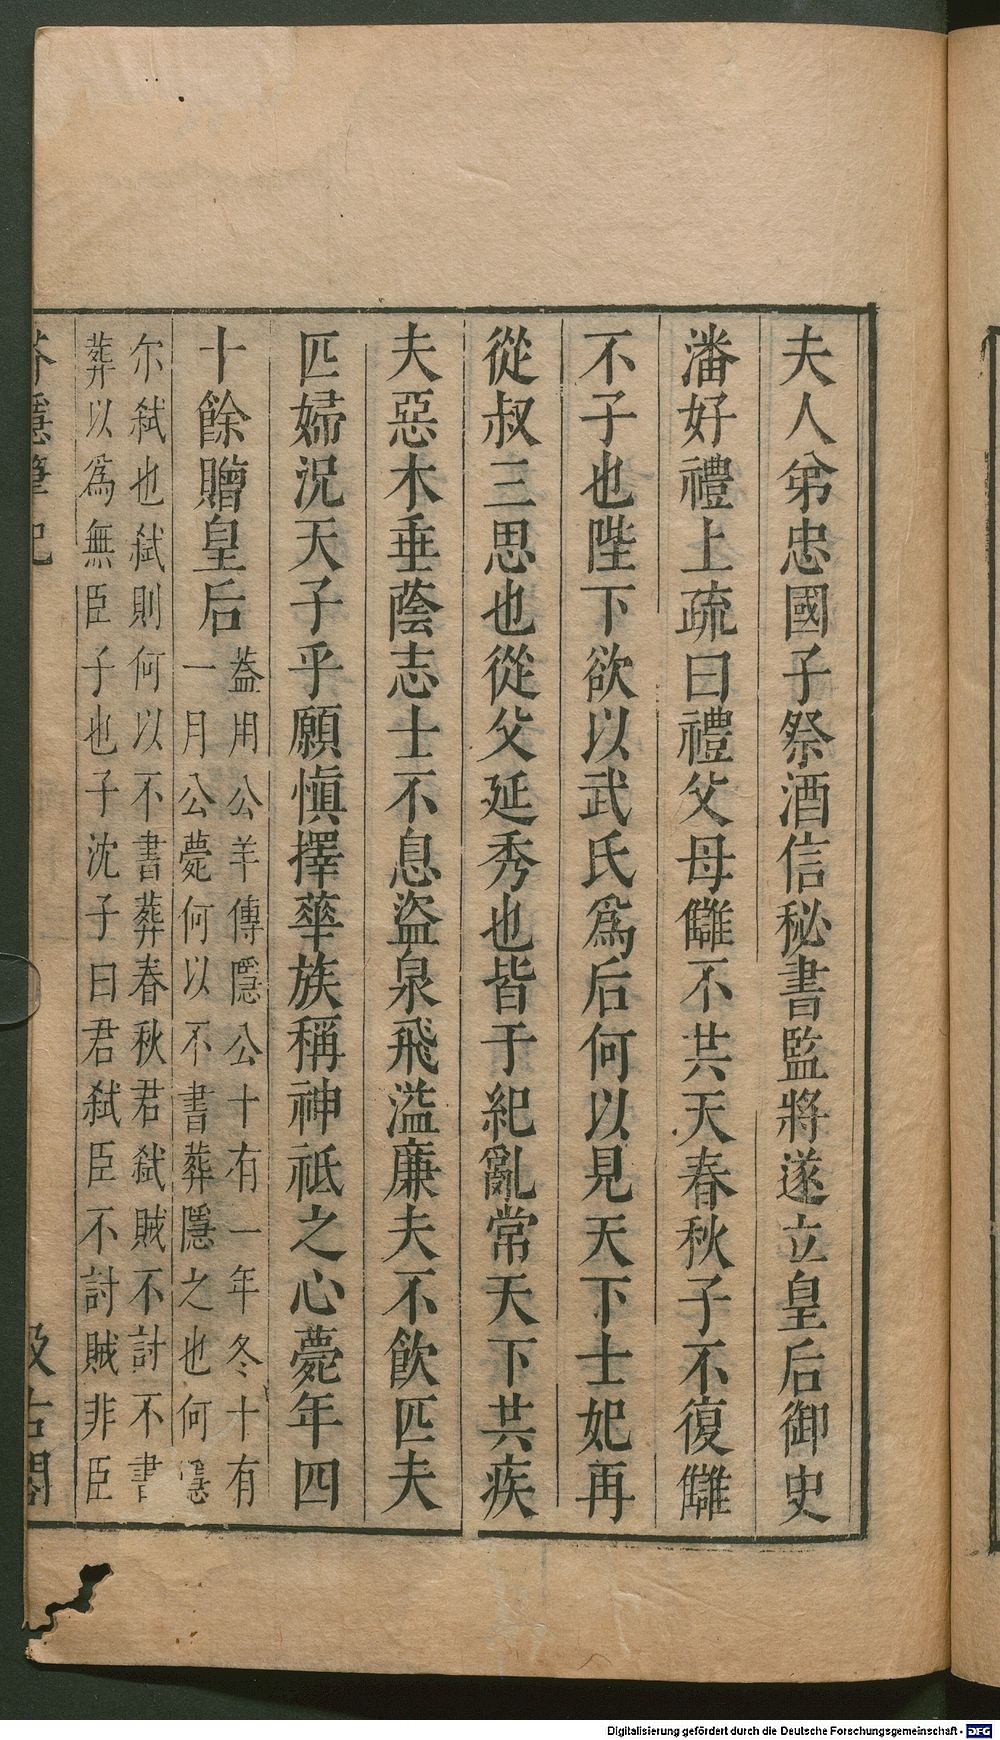 夫人弟忠國子祭酒信秘書監將遂立皇后御史
潘好禮上疏曰禮父母讎不共天春秋子不復讎
不子也陛下欲以武氏爲后何以見天下士妃再
從叔三思也從父延秀也皆于紀亂常天下共疾
夫惡木垂蔭志士不息盜泉飛溢廉夫不飲匹夫
匹婦況天子乎願慎擇華族稱神祇之心薨年四
十餘贈皇后
葢用公羊傳隱公十有一年冬十有
一月公薨何以不書葬隱之也何隱
尔弑也弑則何以不書葬春秋君弑賊不討不書
葬以爲無臣子也子沈子曰君弑臣不討賊非臣
芥隱筆記
汲古閣
Digitalisierung gefördert durch die Deutsche Forschungsgemeinschaft - DFG